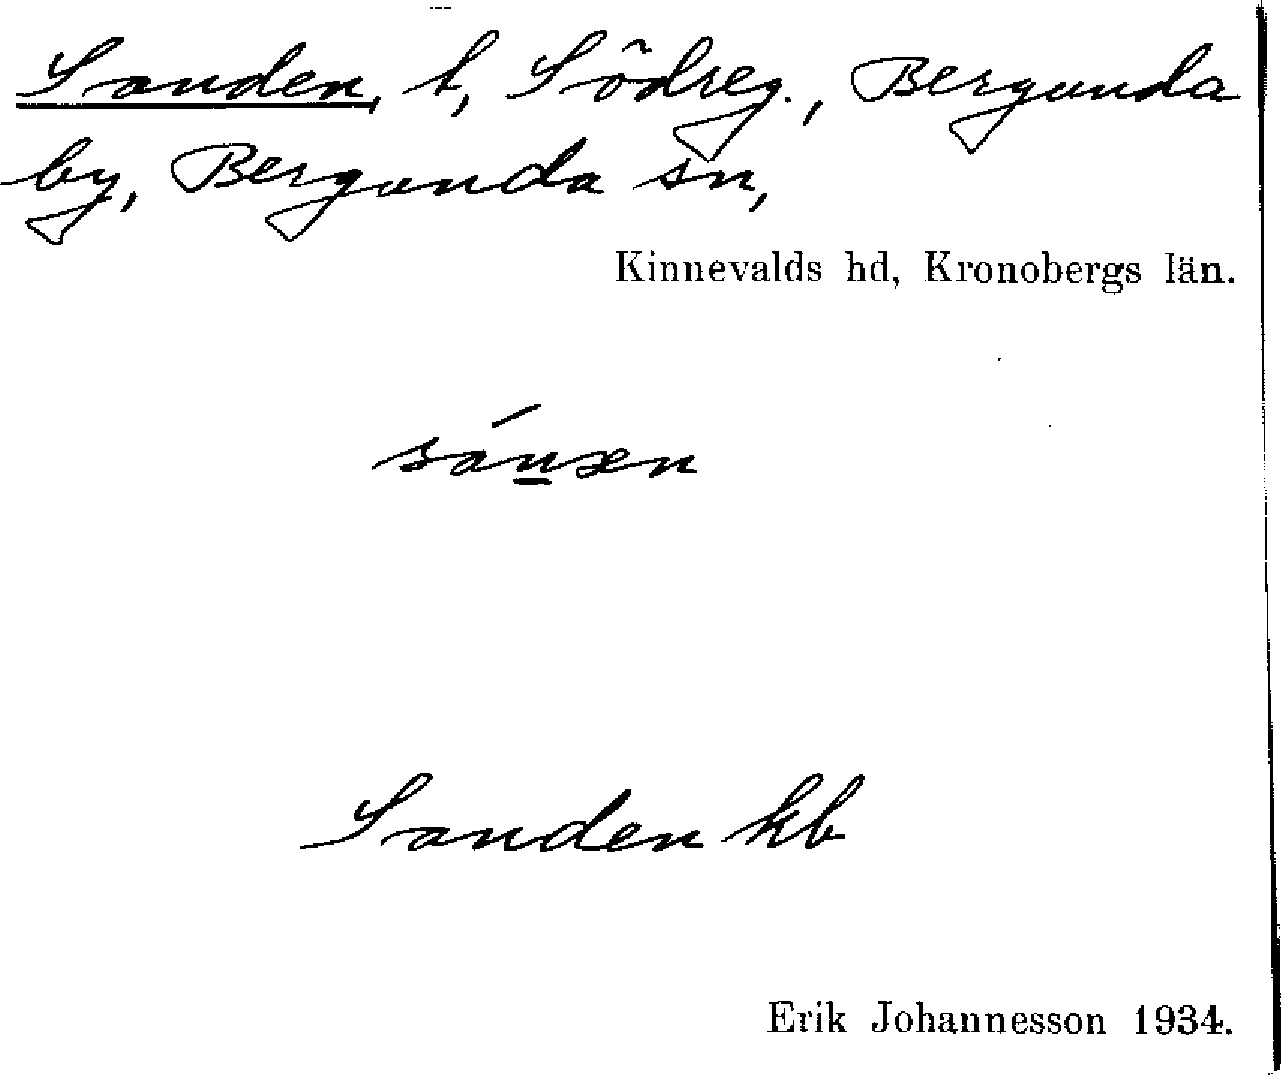 Sanden, t, Södreg., Bergunda
by, Bergunda sn,
Kinnevalds hd, Kronobergs län.
Sanden kb
Erik Johannesson 1934.